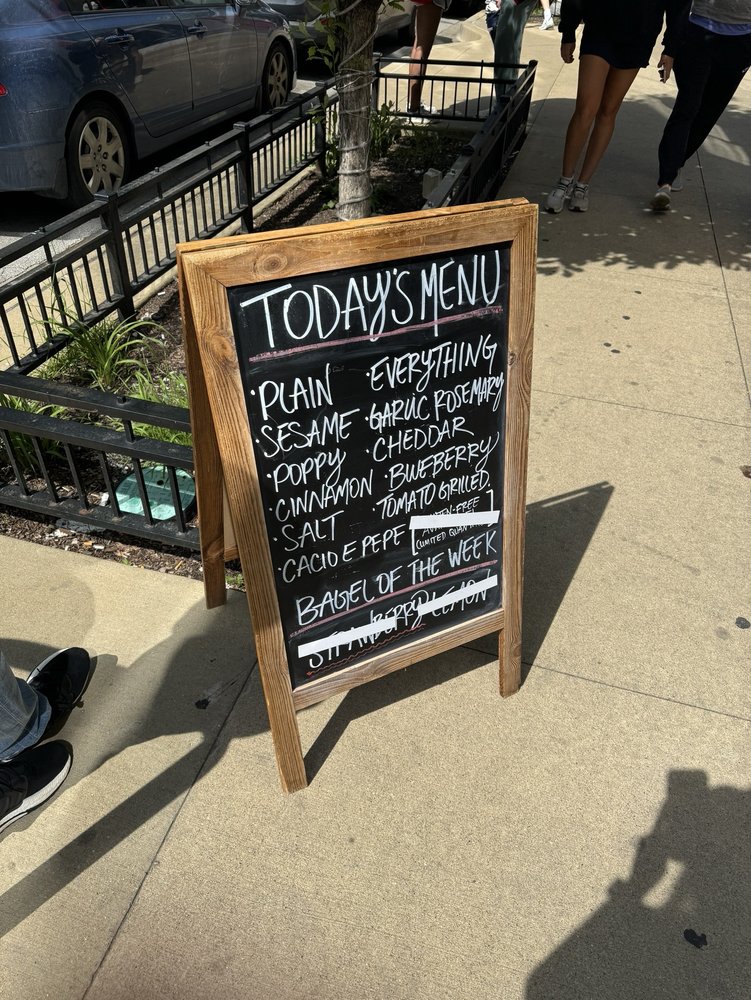 TODAY'S MENU
·PLAIN
·SESAME
·POPPY
·CINNAMON
·SALT
·CACIO E PEPE
·EVERYTHING
·GARLIC ROSEMARY
·CHEDDAR
·BLUEBERRY
·TOMATO GRILLED
GLUTEN-FREE
(LIMITED QUANTITIES)
BAGEL OF THE WEEK
STRAWBERRY LEMON